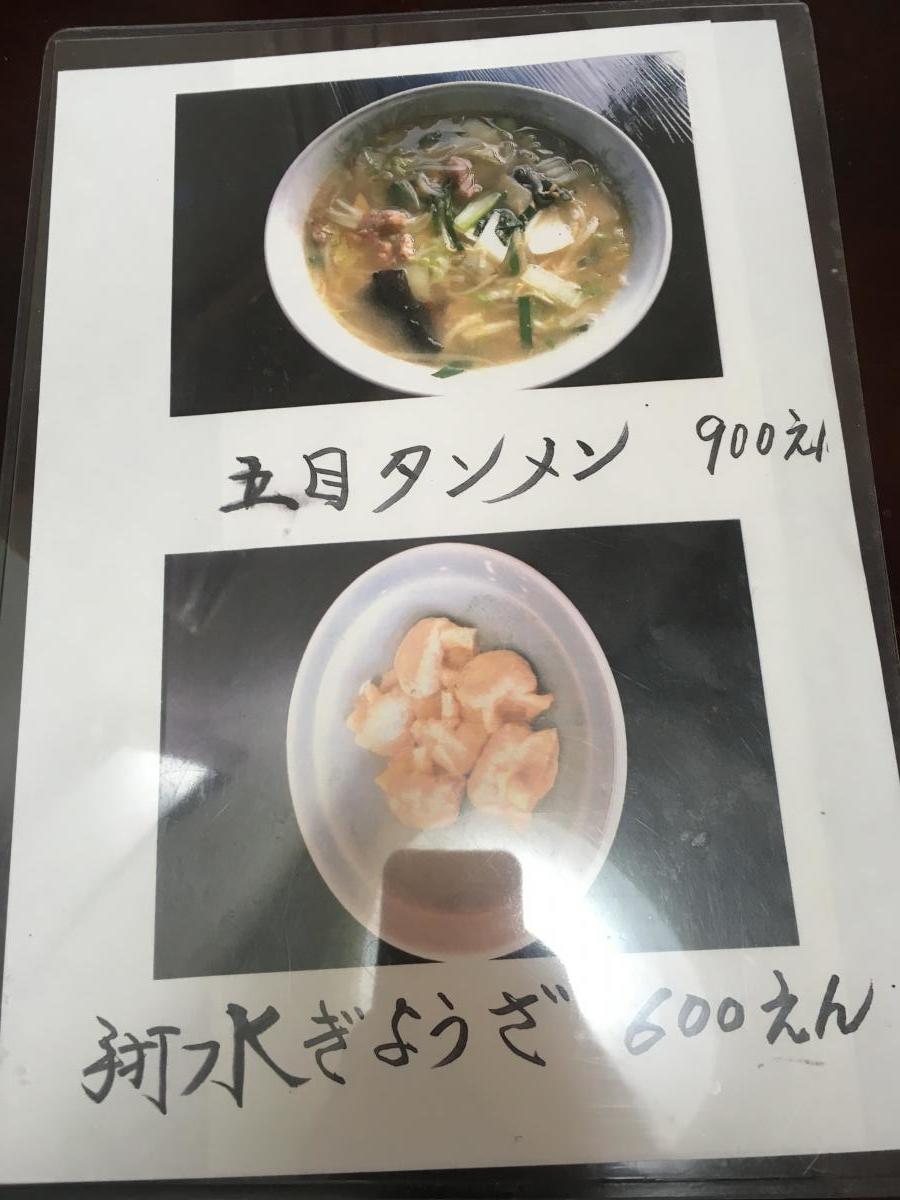 五目タンメン 900えん
水ぎょうざ 600えん